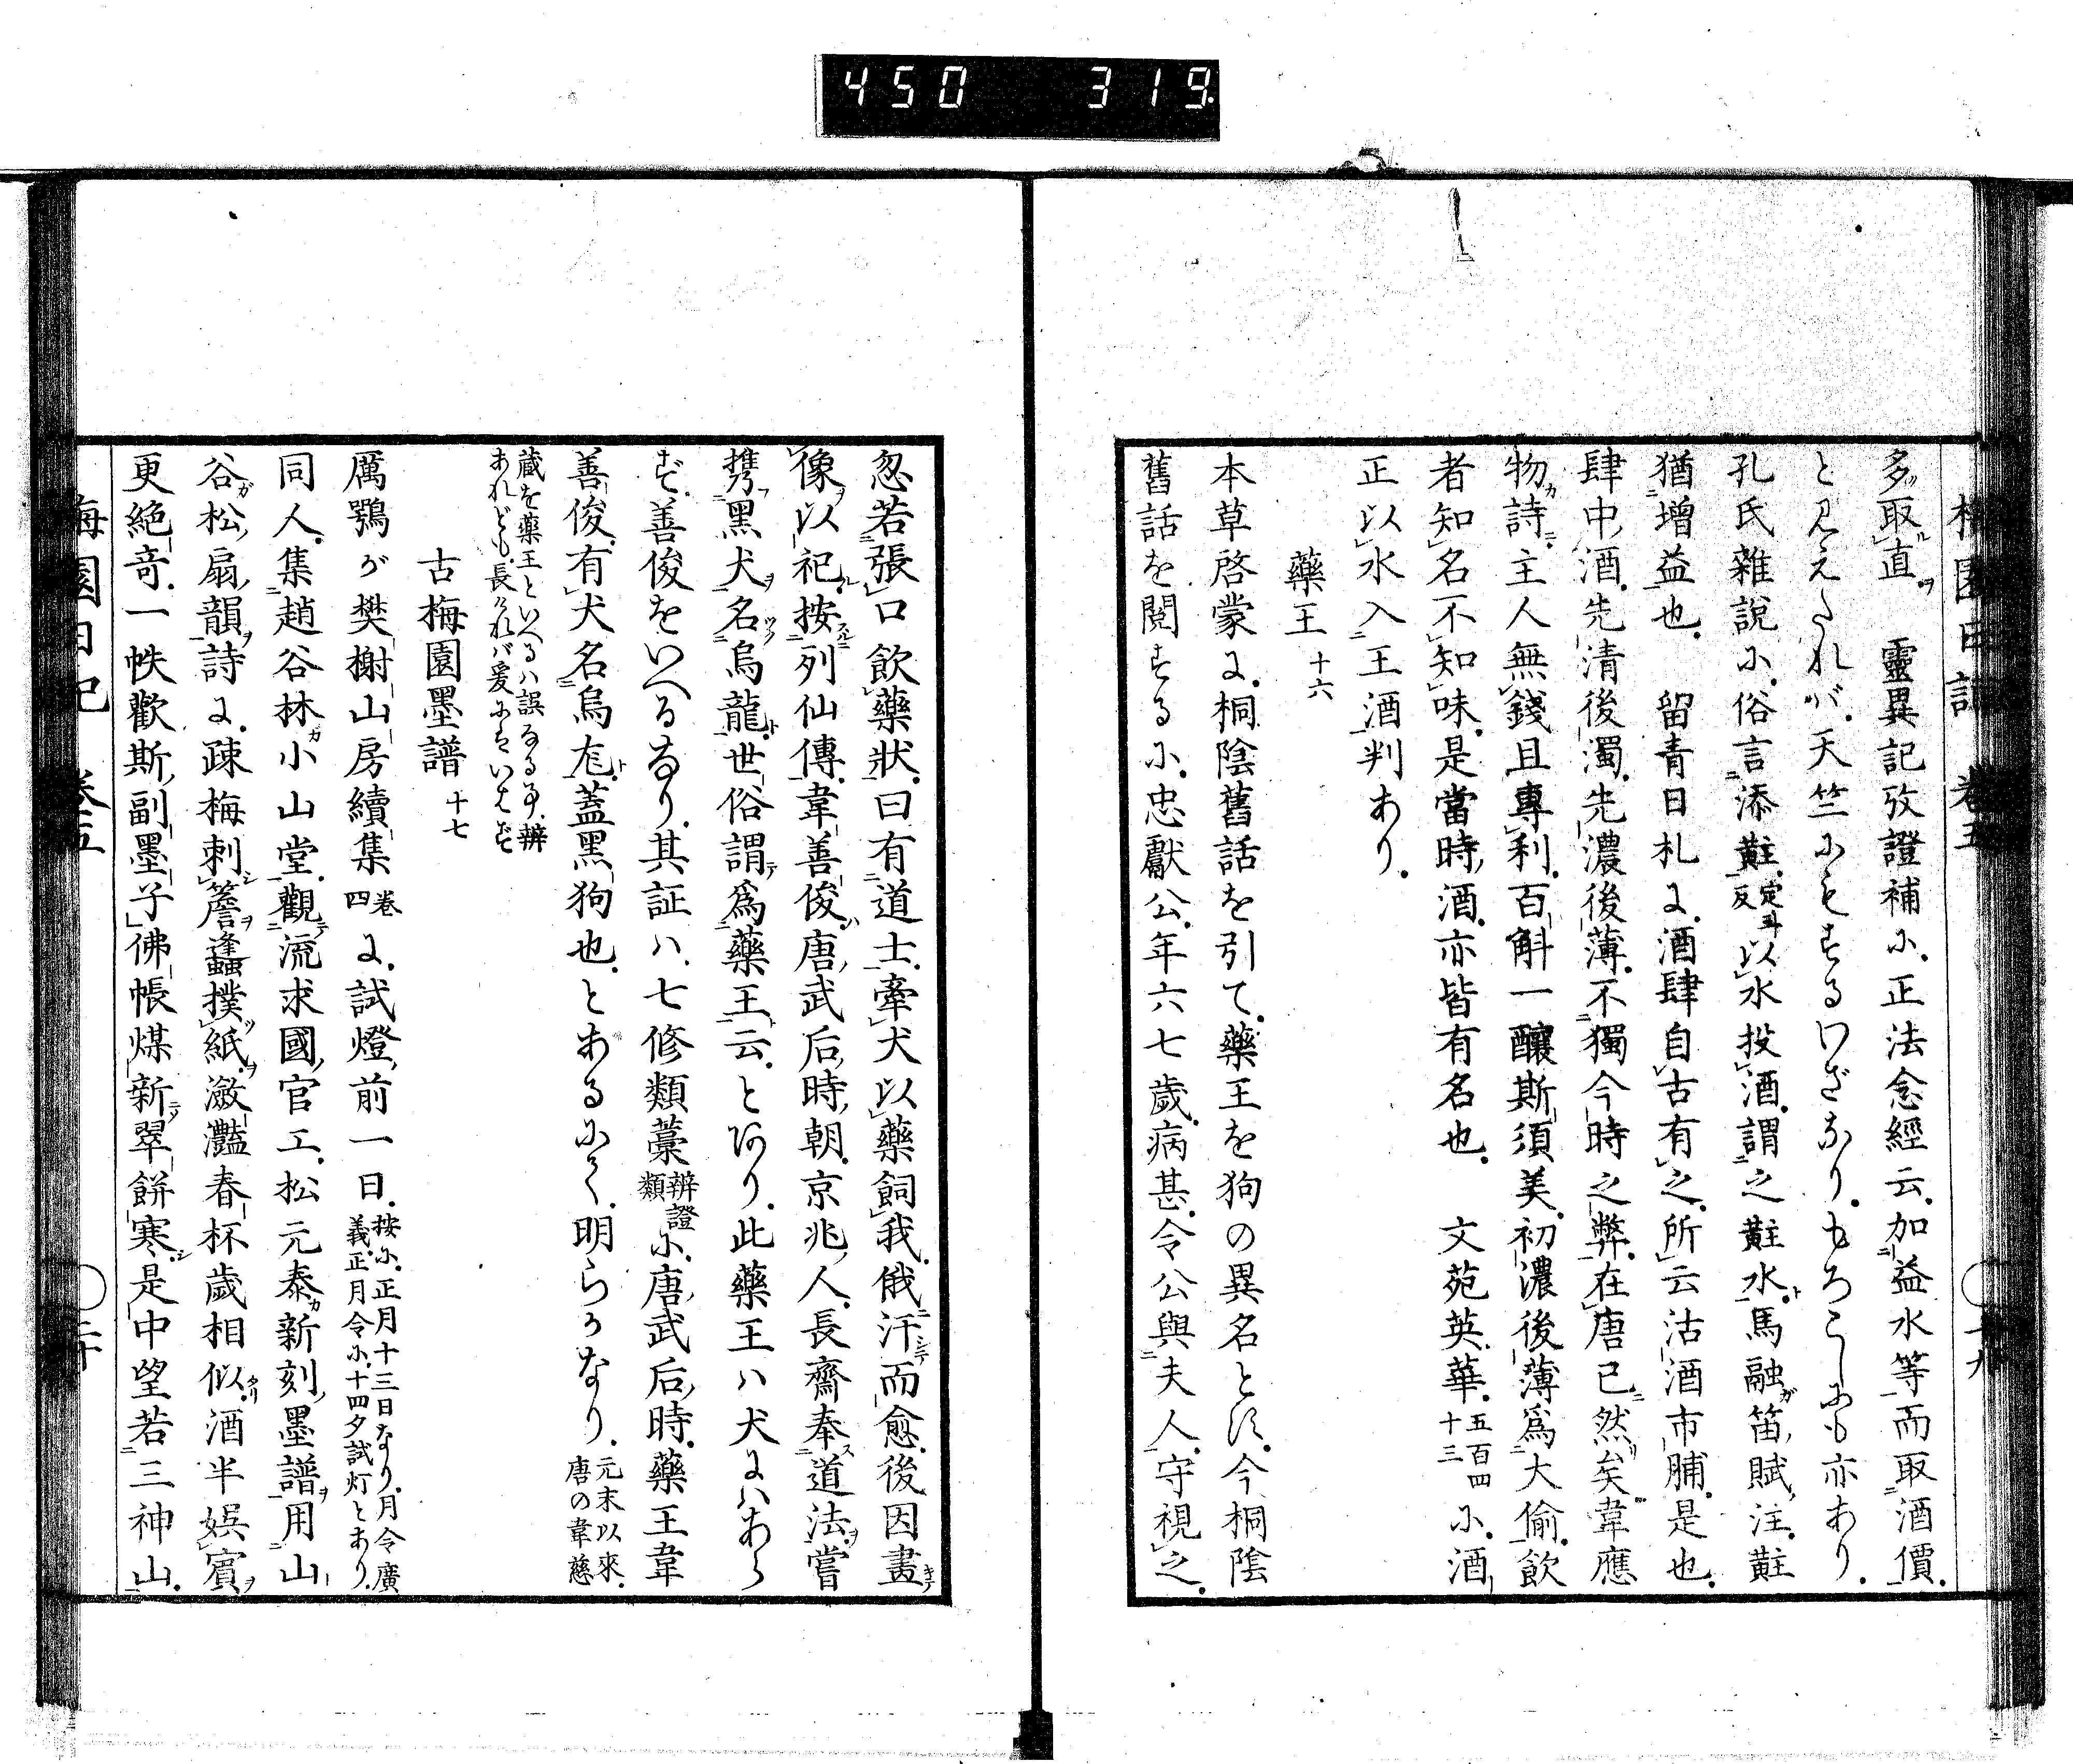 450 319
梅園日記 卷五 十九
多取直 靈異記攷證補に正法念經云加益水等而取酒價
と見えたれバ天竺にもするわざなりもろこしにも亦あり
孔氏雜說に俗言添黈定斗反以水投酒謂之黈水馬融笛賦注黈
猶增益也 留青日札に酒肆自古有之所云沽酒市脯是也
肆中酒先清後濁先濃後薄不獨今時之弊在唐已然矣韋應
物詩主人無錢且專利百斛一釀斯須美初濃後薄爲大偷飲
者知名不知味是當時酒亦皆有名也 文苑英華五百四十三に酒
正以水入王酒判あり
藥王 十六
本草啓蒙に桐陰舊話を引て藥王を狗の異名とす今桐陰
舊話を閲するに忠獻公年六七歲病甚令公與夫人守視之
忽若張口飲藥狀曰有道士牽犬以藥飼我俄汗而愈後因畫
像以祀按列仙傳韋善俊唐武后時朝京兆人長齋奉道法嘗
携黑犬名烏龍世俗謂爲藥王云とあり此藥王ハ犬にハあら
ず善俊をいへるなり其証ハ七修類藁辨證類に唐武后時藥王韋
善俊有犬名烏尨蓋黑狗也とあるにて明らかなり元末以來唐の韋慈
藏を藥王といへるハ誤なる事辨あれども長けれバ爰にはいはず
古梅園墨譜 十七
厲鶚が樊榭山房續集卷四に試燈前一日按に正月十三日なり月令廣義正月令に十四夕試灯とあり
同人集趙谷林小山堂觀流求國官工松元泰新刻墨譜用山
谷松扇韻詩に疎梅刺簷蓬蟲撲紙瀲灩春杯歲相似酒半娛賓
更絶竒一帙歡斯副墨子佛帳煤新翠餅寒是中望若三神山
梅園日記 卷五 二十